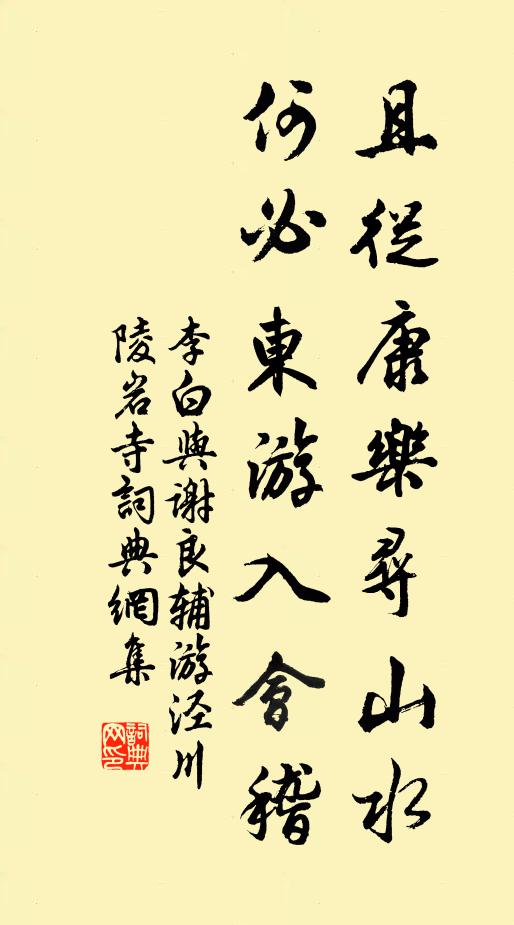 且從康樂尋山水
何必東游入會稽
李白與謝良輔游涇川
陵岩寺詞典網集
詞典网印